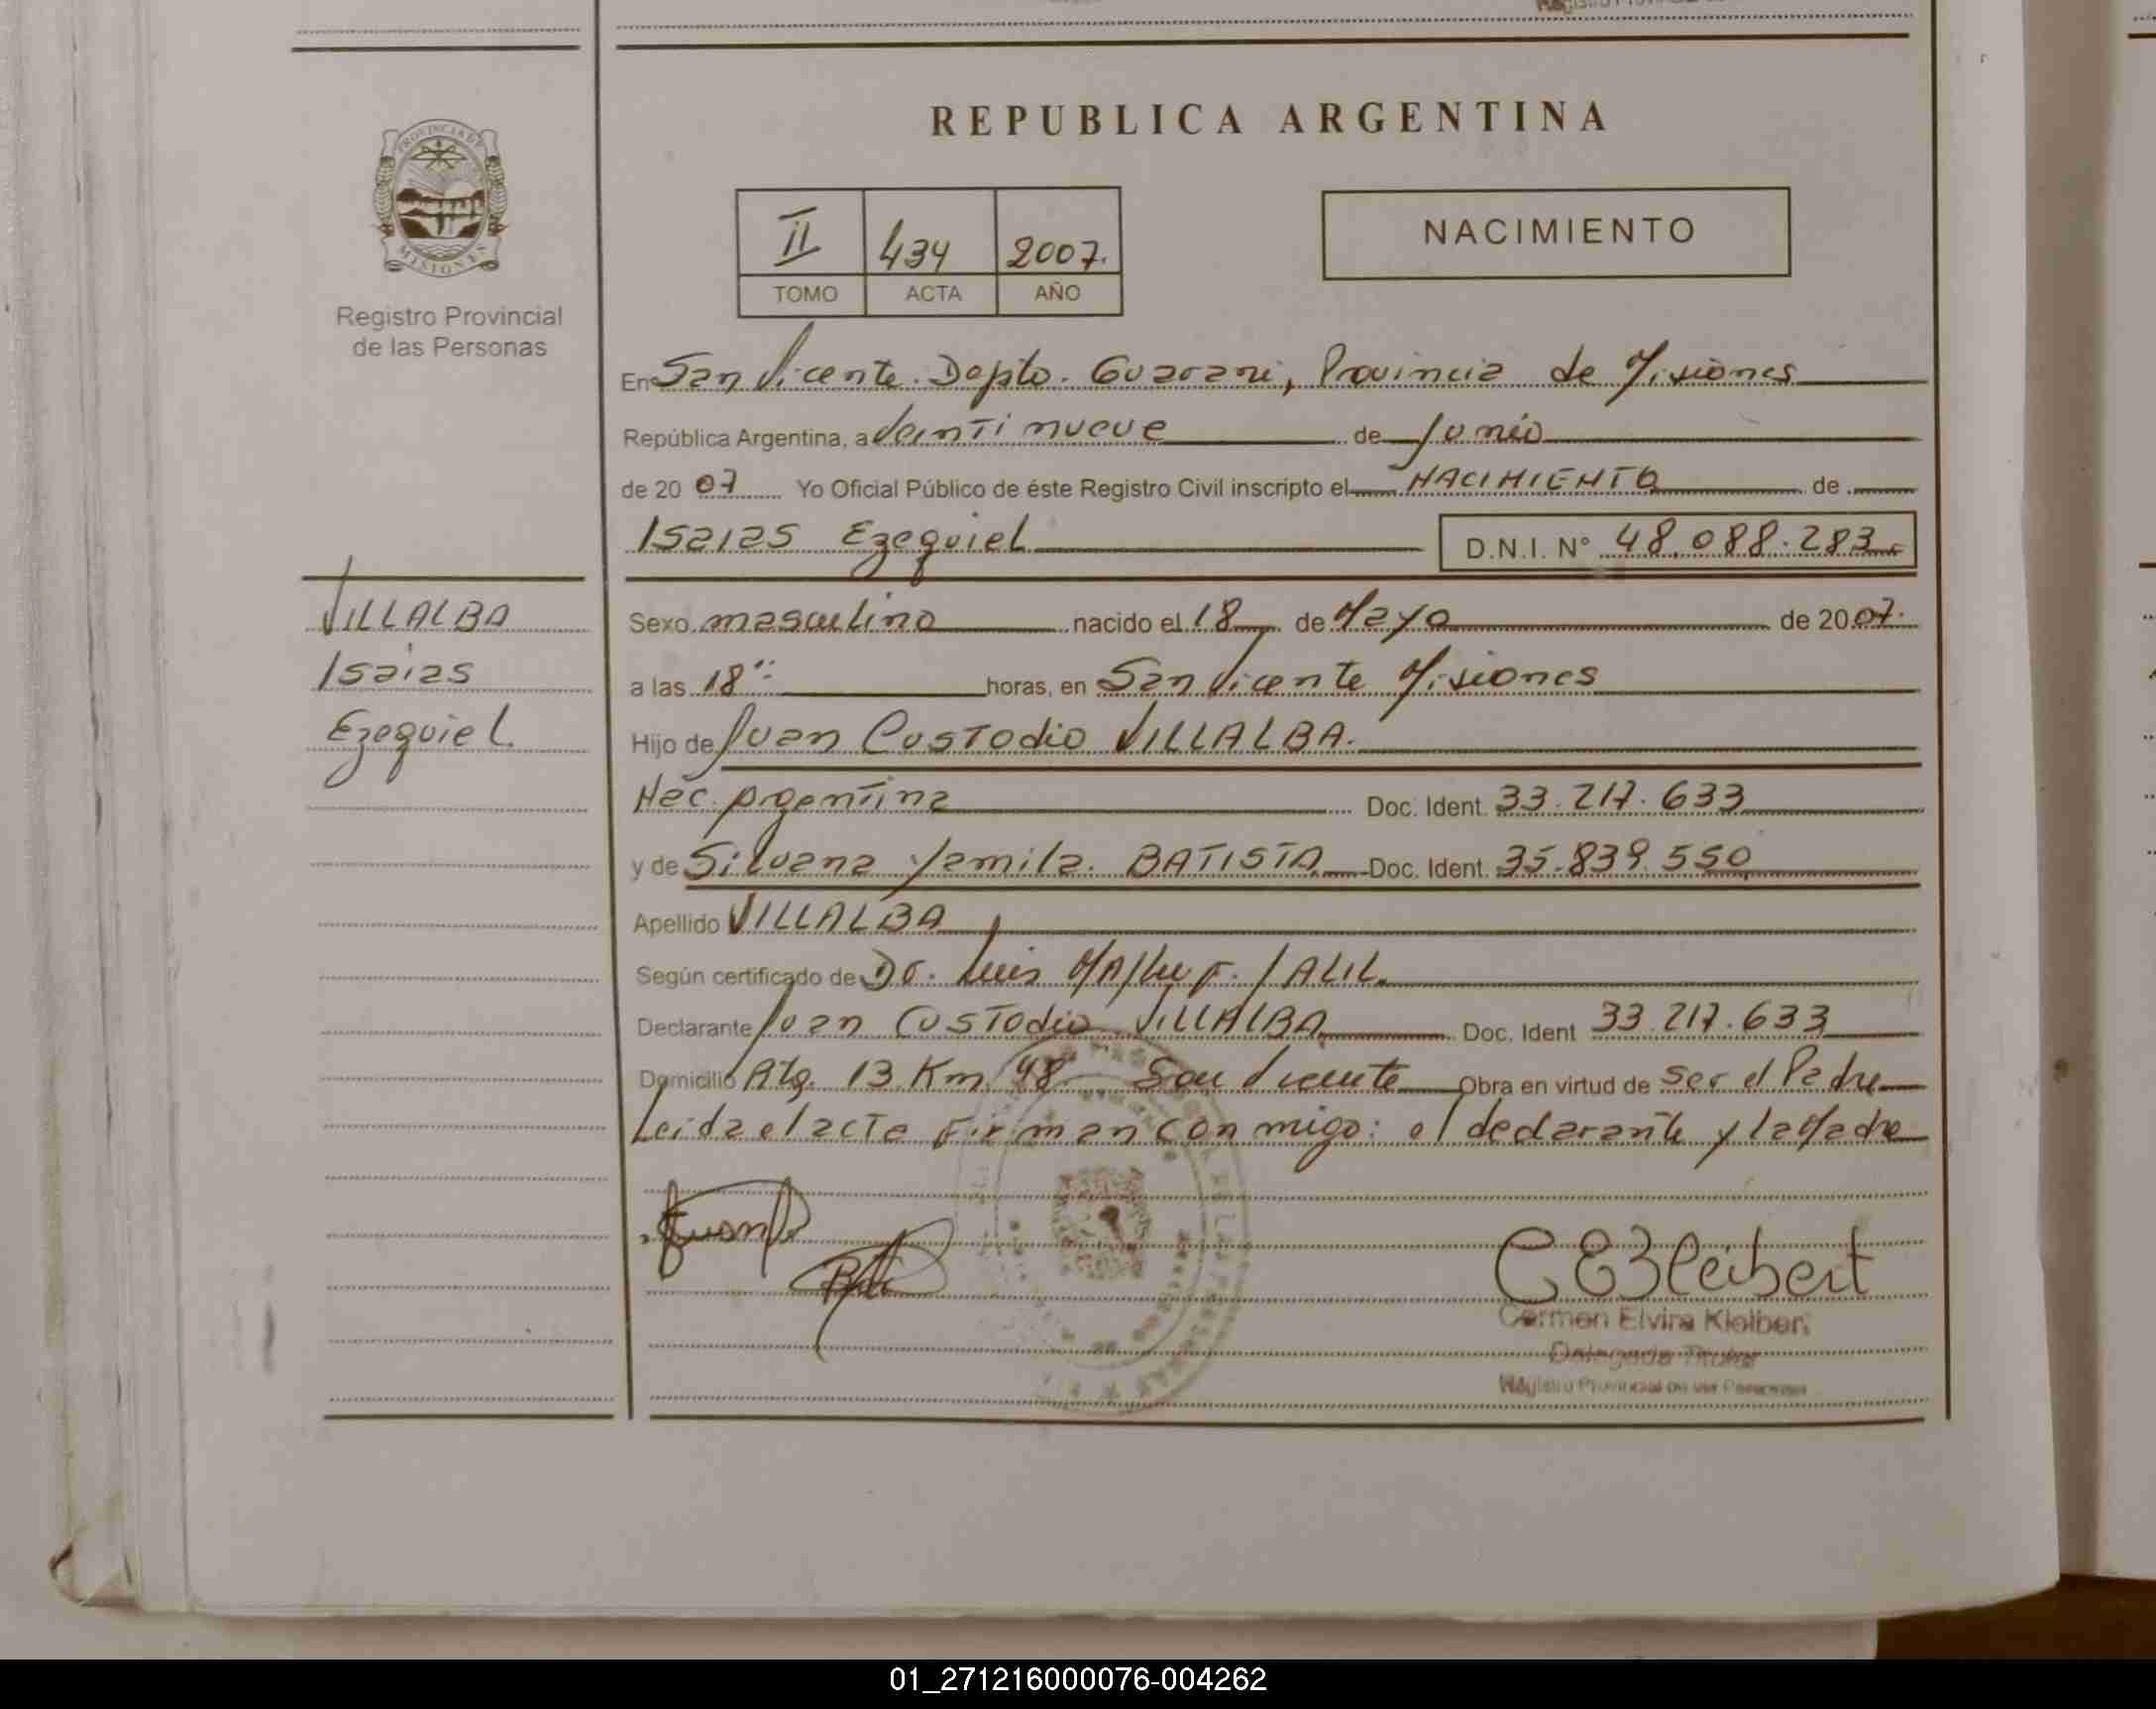 REPUBLICA ARGENTINA
PROVINCIA DE
MISIONES
Registro Provincial
de las Personas
II 434 2007.
TOMO ACTA AÑO
NACIMIENTO
En San Vicente. Depto. Guarani, Provincia de Misiones
República Argentina, a Veinti nueve de Junio
de 20 07 Yo Oficial Público de éste Registro Civil inscripto el NACIMIENTO de
Isaias Ezequiel D.N.I. N° 48.088.283
VILLALBA
Isaias
Ezequiel.
Sexo masculino nacido el 18 de Mayo de 2007.
a las 18 horas, en San Vicente Misiones
Hijo de Juan Custodio VILLALBA.
Nac. Argentina Doc. Ident. 33.217.633
y de Silvana Yamila. BATISTA Doc. Ident. 35.839.550
Apellido VILLALBA
Según certificado de Dr. Luis JALIL.
Declarante Juan Custodio VILLALBA Doc. Ident 33.217.633
Domicilio 13 Km 98 San Vicente Obra en virtud de ser el Padre
Leida el acta Firman con migo: el declarante y la Madre
Juan
CEKleibert
Carmen Elvira Kleibert
Delegada Titular
Registro Provincial de las Personas
01_271216000076-004262